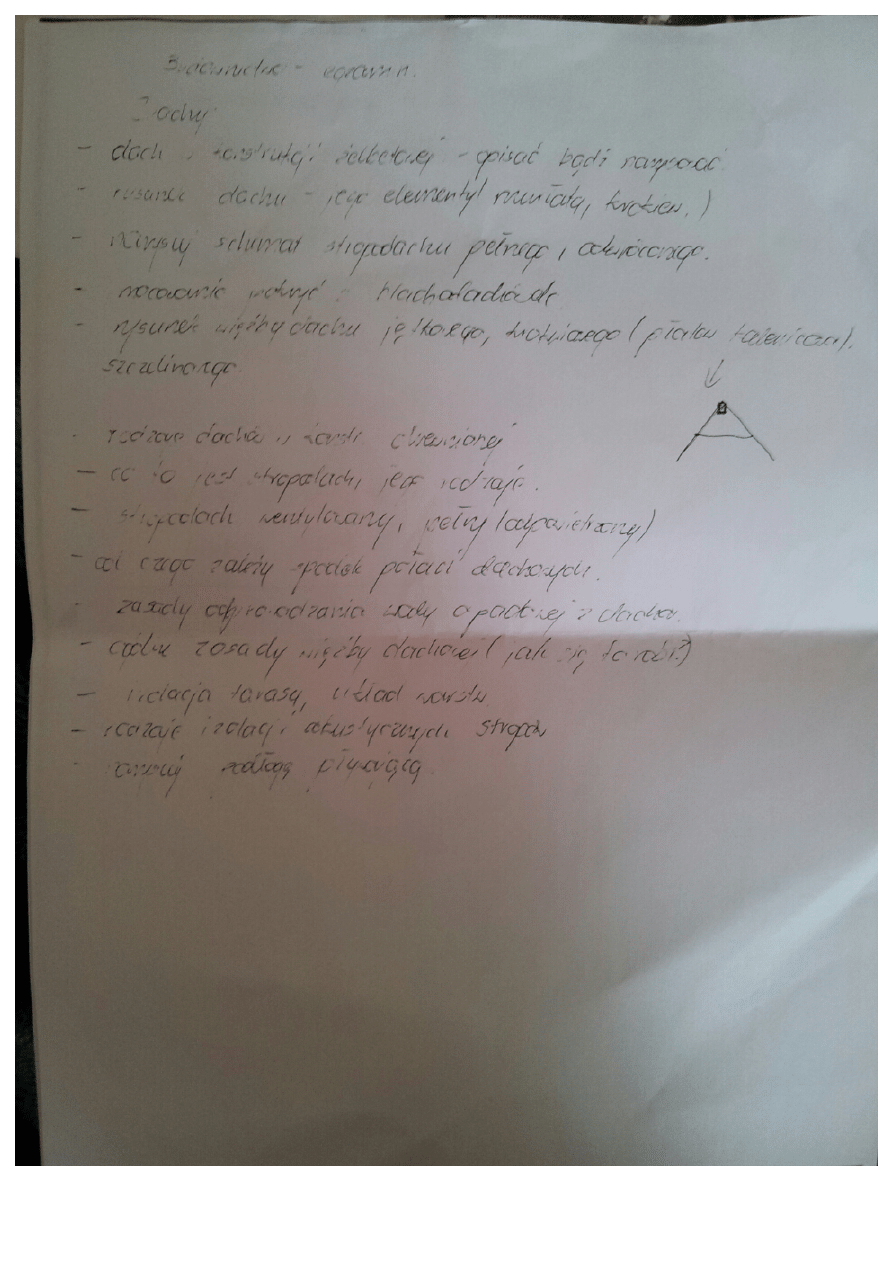 Budownictwo - egzamin.
Dachy
- dach o konstrukcji żelbetowej - opisać bądź narysować.
- rysunek dachu - jego elementy( murłata, krokiew.)
- Narysuj schemat stropodachu pełnego, odwróconego.
- mocowanie pokryć - blachodachówk
- rysunek więźby dachu jętkowego, krokwiowego ( płatew kalenicowa).
szczelinowego
- rodzaje dachów o konstr. drewnianej
- co to jest stropodach, jego rodzaje.
- stropodach wentylowany, pełny (odpowietrzony)
- od czego zależy spadek połaci dachowych.
- zasady odprowadzania wody opadowej z dachu.
- ogólne zasady więźby dachowej ( jak się to robi?)
- izolacja tarasu, układ warstw
- rodzaje izolacji akustycznych stropów
- narysuj podłogę pływającą.